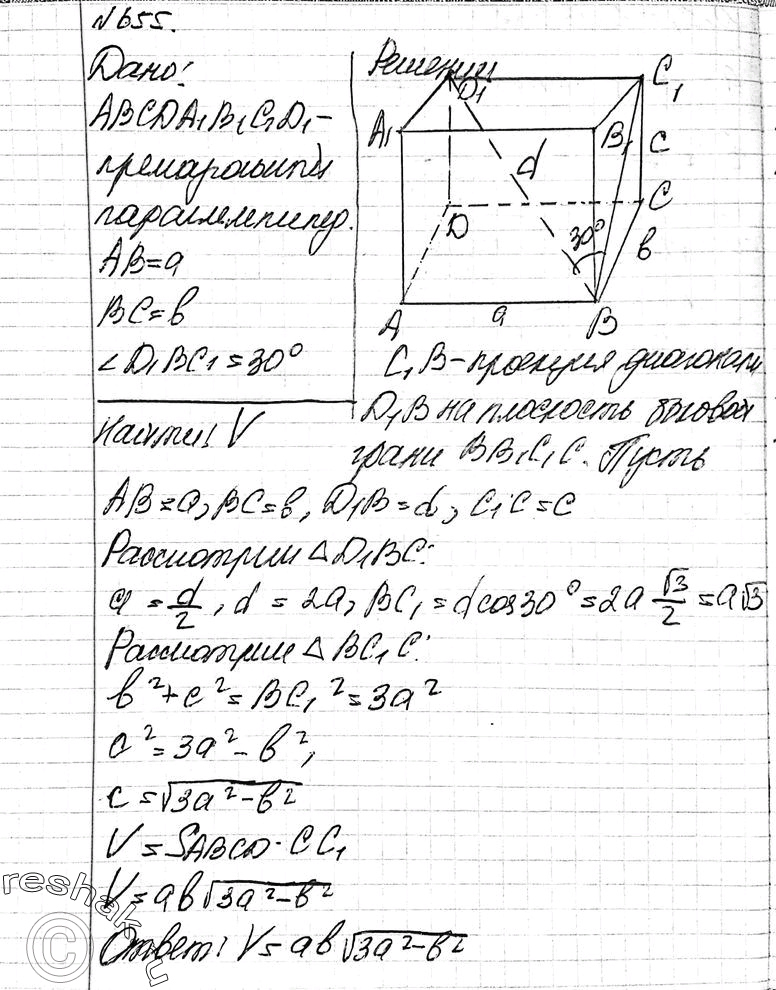 №655.
Дано:
ABCDA₁B₁C₁D₁ –
прямоугольный
параллелепипед.
AB=a
BC=b
∠D₁BC₁=30°
Найти: V
Решение
D₁
C₁
A₁
B₁
c
d
D
C
30°
b
A
a
B
C₁B – проекция диагонали
D₁B на плоскость боковой
грани BB₁C₁C. Пусть
AB=a, BC=b, D₁B=d, C₁C=c
Рассмотрим △D₁BC:
a = d/2, d = 2a, BC₁ = d cos30° = 2a √3/2 = a√3
Рассмотрим △BC₁C:
b² + c² = BC₁² = 3a²
c² = 3a² – b²,
c = √(3a² – b²)
V = SABCD · CC₁
V = ab √(3a² – b²)
Ответ: V = ab √(3a² – b²)
reshak.ru
©